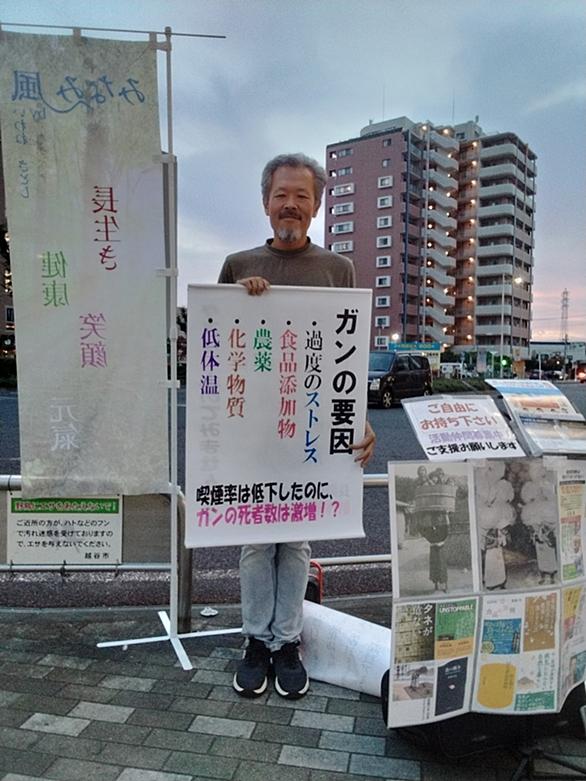 みなみ風
長生き
健康
笑顔
元氣
ガンの要因
・過度のストレス
・食品添加物
・農薬
・化学物質
・低体温
喫煙率は低下したのに、
ガンの死者数は激増！？
野鳩にエサをあたえないで！
ご近所の方が、ハトなどのフン
で汚れ迷惑を受けておりますの
で、エサを与えないでください。
越谷市
ご自由に
お持ち下さい
活動仲間募集中
ご支援お願いします
タネが
UNSTOPPABLE